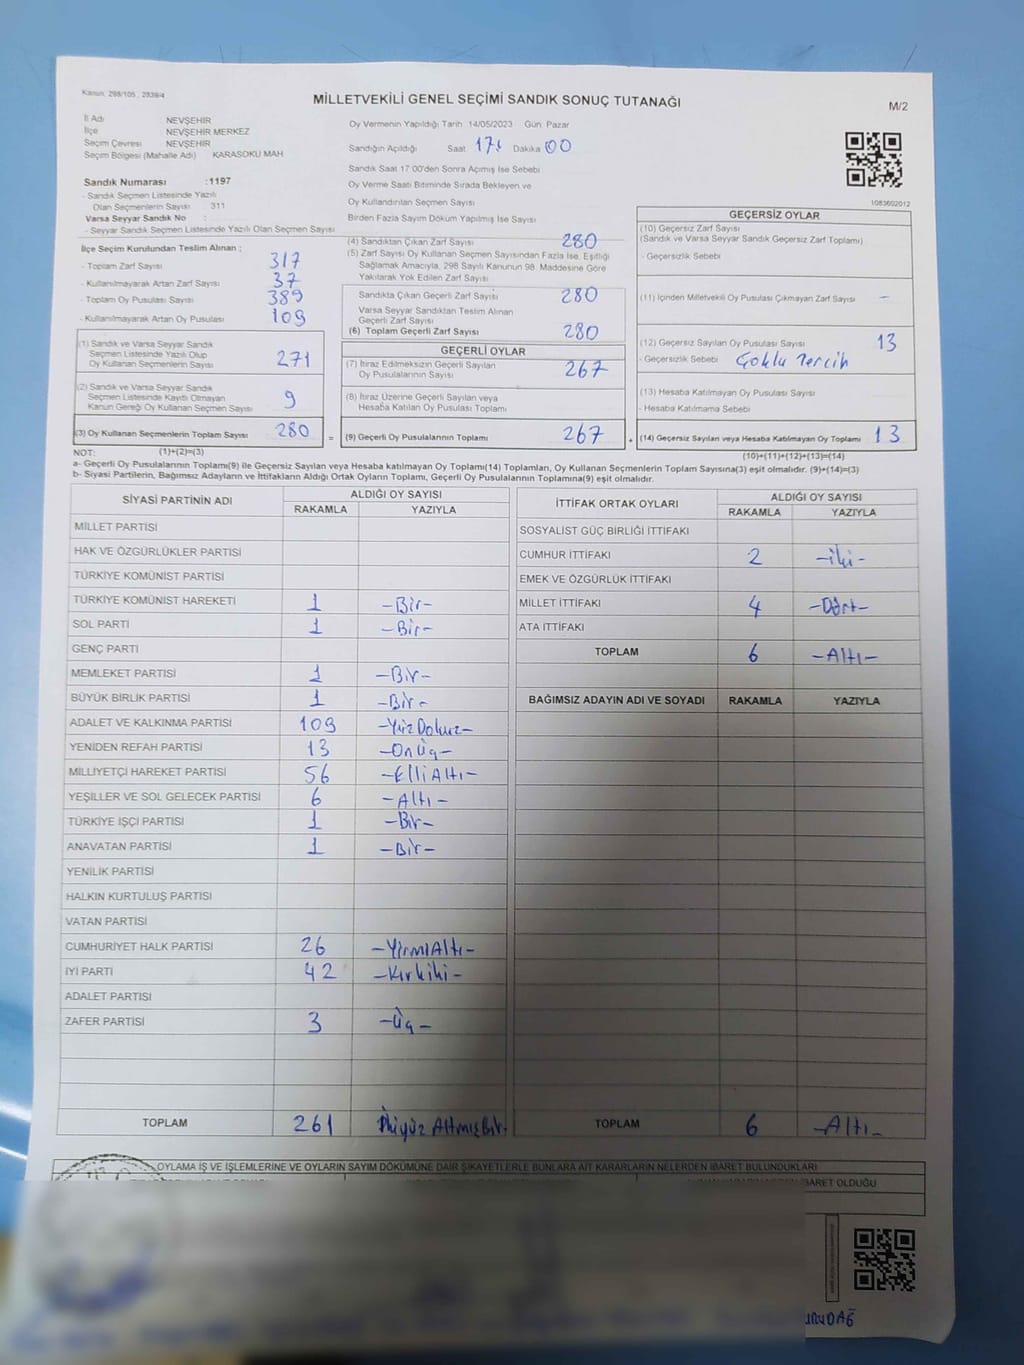 Kanun, 298/105 , 2839/4
MİLLETVEKİLİ GENEL SEÇİMİ SANDIK SONUÇ TUTANAĞI
M/2
İl Adı NEVŞEHİR
İlçe NEVŞEHİR MERKEZ
Seçim Çevresi NEVŞEHİR
Seçim Bölgesi (Mahalle Adı) KARASOKU MAH
Oy Vermenin Yapıldığı Tarih 14/05/2023 Gün: Pazar
Sandığın Açıldığı Saat 17: Dakika 00
Sandık Saat 17 00'den Sonra Açımış İse Sebebi
Oy Verme Saati Bitiminde Sırada Bekleyen ve
Oy Kullandırılan Seçmen Sayısı
Birden Fazla Sayım Döküm Yapılmış İse Sayısı
Sandık Numarası :1197
- Sandık Seçmen Listesinde Yazılı
Olan Seçmenlerin Sayısı 311
Varsa Seyyar Sandık No :
- Seyyar Sandık Seçmen Listesinde Yazılı Olan Seçmen Sayısı
1083602012
İlçe Seçim Kurulundan Teslim Alınan ;
- Toplam Zarf Sayısı 317
- Kullanılmayarak Artan Zarf Sayısı 37
- Toplam Oy Pusulası Sayısı 389
- Kullanılmayarak Artan Oy Pusulası 109
(1) Sandık ve Varsa Seyyar Sandık
Seçmen Listesinde Yazılı Olup
Oy Kullanan Seçmenlerin Sayısı 271
(2) Sandık ve Varsa Seyyar Sandık
Seçmen Listesinde Kayıtlı Olmayan
Kanun Gereği Oy Kullanan Seçmen Sayısı 9
(3) Oy Kullanan Seçmenlerin Toplam Sayısı 280
(4) Sandıktan Çıkan Zarf Sayısı 280
(5) Zarf Sayısı Oy Kullanan Seçmen Sayısından Fazla İse, Eşitliği
Sağlamak Amacıyla, 298 Sayılı Kanunun 98. Maddesine Göre
Yakılarak Yok Edilen Zarf Sayısı
Sandıkta Çıkan Geçerli Zarf Sayısı 280
Varsa Seyyar Sandıktan Teslim Alınan
Geçerli Zarf Sayısı
(6) Toplam Geçerli Zarf Sayısı 280
GEÇERLİ OYLAR
(7) İtiraz Edilmeksizin Geçerli Sayılan
Oy Pusulalarının Sayısı 267
(8) İtiraz Üzerine Geçerli Sayılan veya
Hesaba Katılan Oy Pusulası Toplamı
= (9) Geçerli Oy Pusulalarının Toplamı 267
GEÇERSİZ OYLAR
(10) Geçersiz Zarf Sayısı
(Sandık ve Varsa Seyyar Sandık Geçersiz Zarf Toplamı)
- Geçersizlik Sebebi
(11) İçinden Milletvekili Oy Pusulası Çıkmayan Zarf Sayısı -
(12) Geçersiz Sayılan Oy Pusulası Sayısı 13
- Geçersizlik Sebebi Çoklu Tercih
(13) Hesaba Katılmayan Oy Pusulası Sayısı
- Hesaba Katılmama Sebebi
+ (14) Geçersiz Sayılan veya Hesaba Katılmayan Oy Toplamı 13
NOT: (1)+(2)=(3)
(10)+(11)+(12)+(13)=(14)
a- Geçerli Oy Pusulalarının Toplamı(9) ile Geçersiz Sayılan veya Hesaba katılmayan Oy Toplamı(14) Toplamları, Oy Kullanan Seçmenlerin Toplam Sayısına(3) eşit olmalıdır. (9)+(14)=(3)
b- Siyasi Partilerin, Bağımsız Adayların ve İttifakların Aldığı Ortak Oyların Toplamı, Geçerli Oy Pusulalarının Toplamına(9) eşit olmalıdır.
SİYASİ PARTİNİN ADI ALDIĞI OY SAYISI
RAKAMLA YAZIYLA
MİLLET PARTİSİ
HAK VE ÖZGÜRLÜKLER PARTİSİ
TÜRKİYE KOMÜNİST PARTİSİ
TÜRKİYE KOMÜNİST HAREKETİ 1 -Bir-
SOL PARTİ 1 -Bir-
GENÇ PARTİ
MEMLEKET PARTİSİ 1 -Bir-
BÜYÜK BİRLİK PARTİSİ 1 -Bir-
ADALET VE KALKINMA PARTİSİ 109 -YüzDokuz-
YENİDEN REFAH PARTİSİ 13 -OnÜç-
MİLLİYETÇİ HAREKET PARTİSİ 56 -ElliAltı-
YEŞİLLER VE SOL GELECEK PARTİSİ 6 -Altı-
TÜRKİYE İŞÇİ PARTİSİ 1 -Bir-
ANAVATAN PARTİSİ 1 -Bir-
YENİLİK PARTİSİ
HALKIN KURTULUŞ PARTİSİ
VATAN PARTİSİ
CUMHURİYET HALK PARTİSİ 26 -YirmiAltı-
İYİ PARTİ 42 -Kırkiki-
ADALET PARTİSİ
ZAFER PARTİSİ 3 -Üç-
TOPLAM 261 İkiyüz AltmışBir-
İTTİFAK ORTAK OYLARI ALDIĞI OY SAYISI
RAKAMLA YAZIYLA
SOSYALİST GÜÇ BİRLİĞİ İTTİFAKI
CUMHUR İTTİFAKI 2 -iki-
EMEK VE ÖZGÜRLÜK İTTİFAKI
MİLLET İTTİFAKI 4 -Dört-
ATA İTTİFAKI
TOPLAM 6 -Altı-
BAĞIMSIZ ADAYIN ADI VE SOYADI RAKAMLA YAZIYLA
TOPLAM 6 -Altı-
OYLAMA İŞ VE İŞLEMLERİNE VE OYLARIN SAYIM DÖKÜMÜNE DAİR ŞİKAYETLERLE BUNLARA AİT KARARLARIN NELERDEN İBARET BULUNDUKLARI
İBARET OLDUĞU